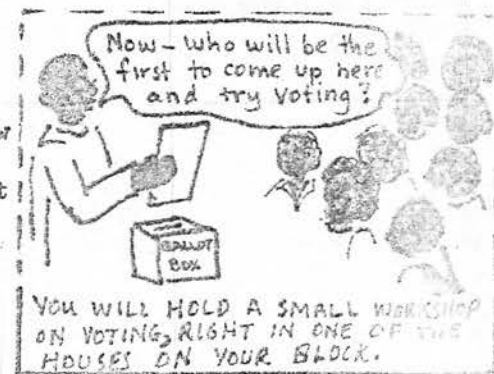 Now - Who will be the
first to come up here
and try Voting?
BALLOT
BOX
YOU WILL HOLD A SMALL WORKSHOP
ON VOTING, RIGHT IN ONE OF THE
HOUSES ON YOUR BLOCK.